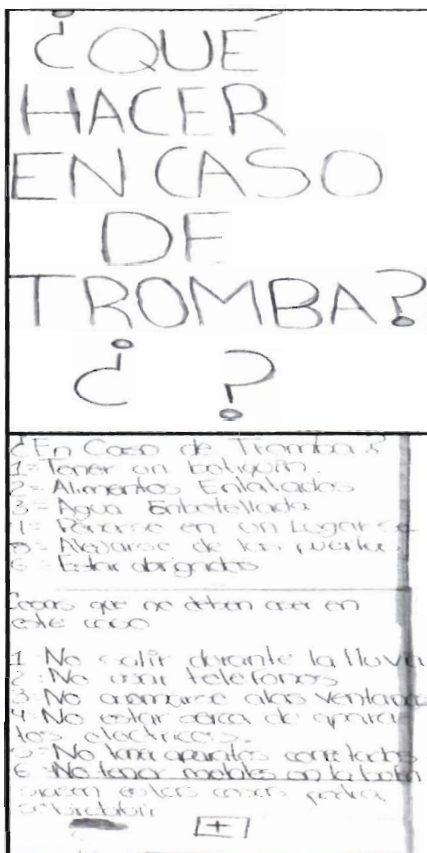 ¿QUÉ
HACER
EN CASO
DE
TROMBA?
¿ ?
¿En Caso de Tromba?
1= Tener un botiquin.
2= Alimentos Enlatados
3= Agua Enbotellada
4= Ponerse en un Lugar
5= Alejarse de las puertas
6= Estar abrigados
Cosas que no deben en
este caso
1 No salir durante la lluvia
2 No usar telefonos
3 No asomarse alas ventanas
4 No estar serca de apara
tos electricos.
5 No tener aparatos conectados
6 No tener metales en la
estas cosas podra
+